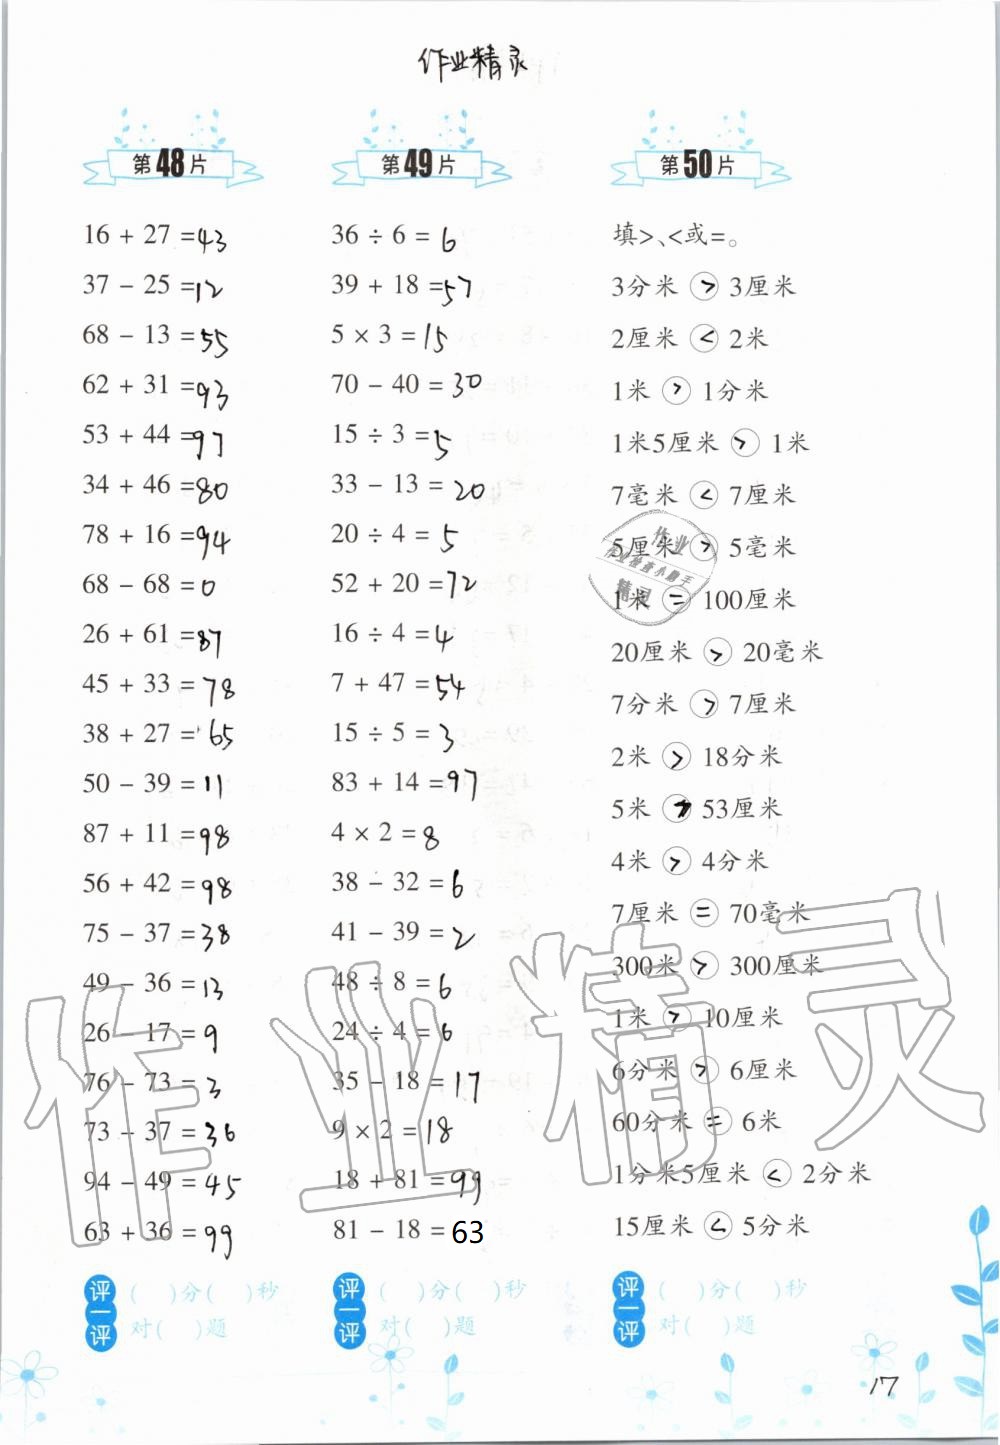 作业精灵
第48片
16 + 27 = 43
37 - 25 = 12
68 - 13 = 55
62 + 31 = 93
53 + 44 = 97
34 + 46 = 80
78 + 16 = 94
68 - 68 = 0
26 + 61 = 87
45 + 33 = 78
38 + 27 = 65
50 - 39 = 11
87 + 11 = 98
56 + 42 = 98
75 - 37 = 38
49 - 36 = 13
26 - 17 = 9
76 - 73 = 3
73 - 37 = 36
94 - 49 = 45
63 + 36 = 99
评一评
( )分( )秒
对( )题
第49片
36 ÷ 6 = 6
39 + 18 = 57
5 × 3 = 15
70 - 40 = 30
15 ÷ 3 = 5
33 - 13 = 20
20 ÷ 4 = 5
52 + 20 = 72
16 ÷ 4 = 4
7 + 47 = 54
15 ÷ 5 = 3
83 + 14 = 97
4 × 2 = 8
38 - 32 = 6
41 - 39 = 2
48 ÷ 8 = 6
24 ÷ 4 = 6
35 - 18 = 17
9 × 2 = 18
18 + 81 = 99
81 - 18 = 63
评一评
( )分( )秒
对( )题
第50片
填>、<或=。
3分米 > 3厘米
2厘米 < 2米
1米 > 1分米
1米5厘米 > 1米
7毫米 < 7厘米
5厘米 > 5毫米
1米 = 100厘米
20厘米 > 20毫米
7分米 > 7厘米
2米 > 18分米
5米 > 53厘米
4米 > 4分米
7厘米 = 70毫米
300米 > 300厘米
1米 > 10厘米
6分米 > 6厘米
60分米 = 6米
1分米5厘米 < 2分米
15厘米 < 5分米
评一评
( )分( )秒
对( )题
作业
作业检查小助手
精灵
作业精灵
17